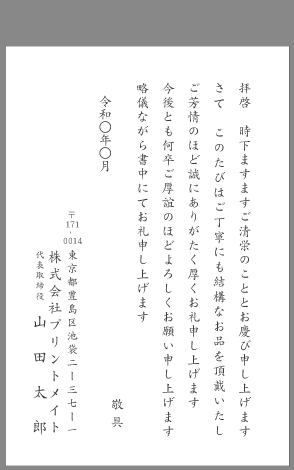 拝啓　時下ますますご清栄のこととお慶び申し上げます
さて　このたびはご丁寧にも結構なお品を頂戴いたし
ご芳情のほど誠にありがたく厚くお礼申し上げます
今後とも何卒ご厚誼のほどよろしくお願い申し上げます
略儀ながら書中にてお礼申し上げます
敬具
令和〇年〇月
〒171-0014
東京都豊島区池袋二ー三七ー一
株式会社プリントメイト
代表取締役　山田太郎